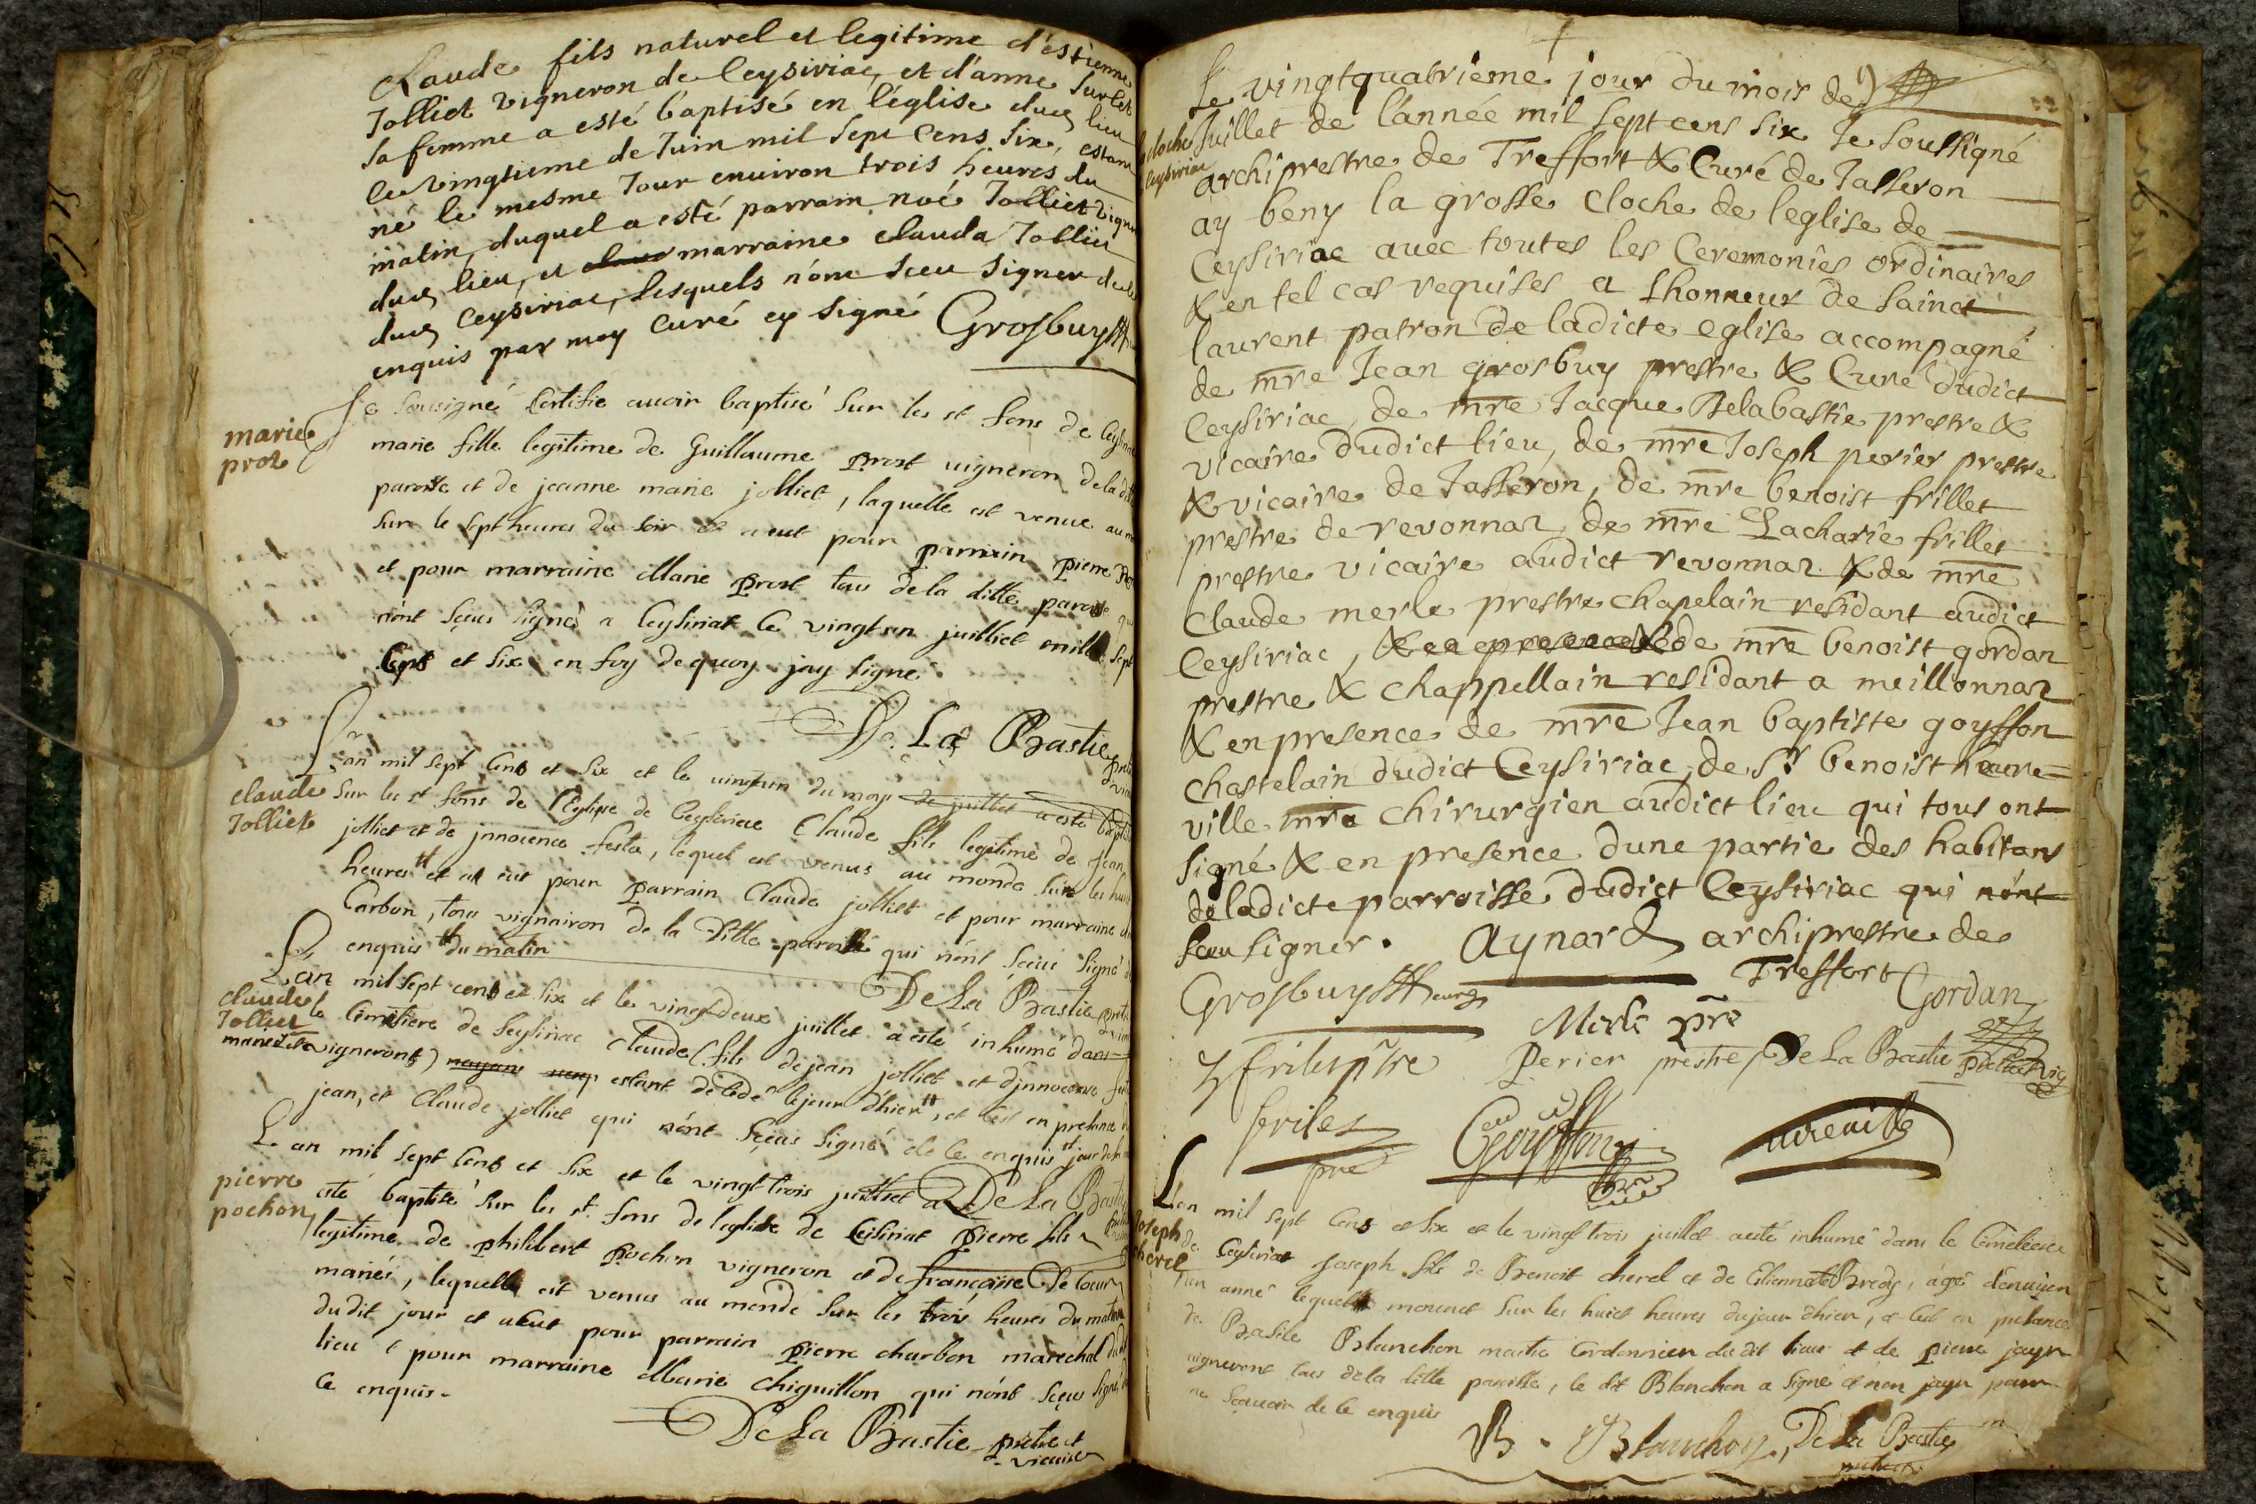 Claude fils naturel et legitime d'estienne
Jolliet vigneron de Ceysiriac, et d'anne Surlet
sa femme a esté baptisé en l'église dud lieu
le vingtieme de Juin mil sept cens six, estant
né le mesme Jour environ trois heures du
matin, duquel a esté parrain noé Jolliet vigneron
dud lieu, et marraine clauda Jolliet
dud Ceysiriac, lesquels n'ont sceu signer de ce
enquis par moy curé cy signé Grosbuy
marie
prost
Je sousigné Certifie auoir baptisé sur les st fons de
marie fille legitime de Guillaume Prost uigneron de la ditte
paroisse et de jeanne marie jolliet, laquelle est venue au monde
sur le sept heures du soir et a eut pour parrain pierre
et pour marraine Marie Prost tous de la ditte paroisse qui
n'ont sçeus signés a Ceysiriat le vingt un juilliet mille sept
Cens et six en foy de quoy jay signe
De La Bastie
claude
Jolliet
L'an mil sept Cens et six et le uingt un du moys de juillet a esté baptisé
sur les st fons de l'Eglise de Ceysiriac Claude fils legitime de jean
jolliet et de jnnocence festa, lequel est venus au monde sur les huit
heures et at eut pour parrain Claude jolliet et pour marraine
Carbon, tous vignairon de la Ditte paroisse qui n'ont sceus signé
enquis du matin
De La Bastie
claude
Jollier
L'an mil sept cens et six et le vingt deux juillet a esté inhumé dans
le Cimistiere de Seysiriac Claude (fils de jean jolliet et d'jnnocence
vignerons) estant décédé le jour d'hier, et Cest en presence
jean, et Claude jolliet qui n'ont sçeus signé de ce enquis
De La Bastie
pierre
pochon
L'an mil sept Cens et six et le vingt trois juilliet a
esté baptisé sur les st fons de l'eglise de Ceisiriat pierre fils
legitime de philibert Pochon vigneron et de françoise De
mariés, lequelle est venus au monde sur les trois heures du matin
dudit jour et a eut pour parrain pierre charbon marechal dudit
lieu et pour marraine Marie Chiguillon qui n'ont sçeus signé
Ce enquis
De La Bastie prêtre et
vicaire
cloche
Ceysiriac
Le vingtquatrieme jour du mois de
Juillet de l'année mil sept cens six Je soussigné
archiprestre de Treffort & Curé de Jasseron
ay beny la grosse cloche de leglise de
Ceysiriac auec toutes les Ceremonies ordinaires
& en tel cas requises a lhonneur de sainct
laurent patron de ladicte eglise accompagné
de mre Jean grosbuy prestre & Curé dudict
Ceysiriac, de mre Jacque Delabastie prestre &
vicaire dudict lieu, de mre Joseph perier prestre
& vicaire de Jasseron, de mre benoist frillet
prestre de revonnaz de mre Zacharie frillet
prestre vicaire audict revonnaz & de mre
Claude merle prestre chapelain residant audict
Ceysiriac, & en presence de mre benoist gordan
prestre & chappellain residant a meillonnaz
& en presence de mre Jean baptiste goyffon
chastelain dudict Ceysiriac, de sr benoist haure=
ville mre chirurgien audict lieu qui tous ont
signé & en presence dune partie des habitans
de ladicte parroisse dudict Ceysiriac qui nont
sceu signer. Aynard archiprestre de
Treffort
Grosbuy curé
Merle pre
Gordan
frilet ptre
Perier prestre De La Bastie
frilet
pre
Goyffon
Joseph
cherel
L'an mil sept Cens et six et le vingt trois juillet a esté inhumé dans le Cimetiere
de Ceysiriat joseph fils de Benoit cherel et de Etiennette Bredy, agé d'enuiron
un anné lequel mourut sur les huict heures du jour d'hier, et Cest en presence
de Basile Blanchon maitre Cordonnier du dit lieu et de pierre jayr
uignerons tous de la ditte paroisse, le dit Blanchon a signé et non jayr pour
ne sçauoir de ce enquis
B. Blanchon, De La Bastie